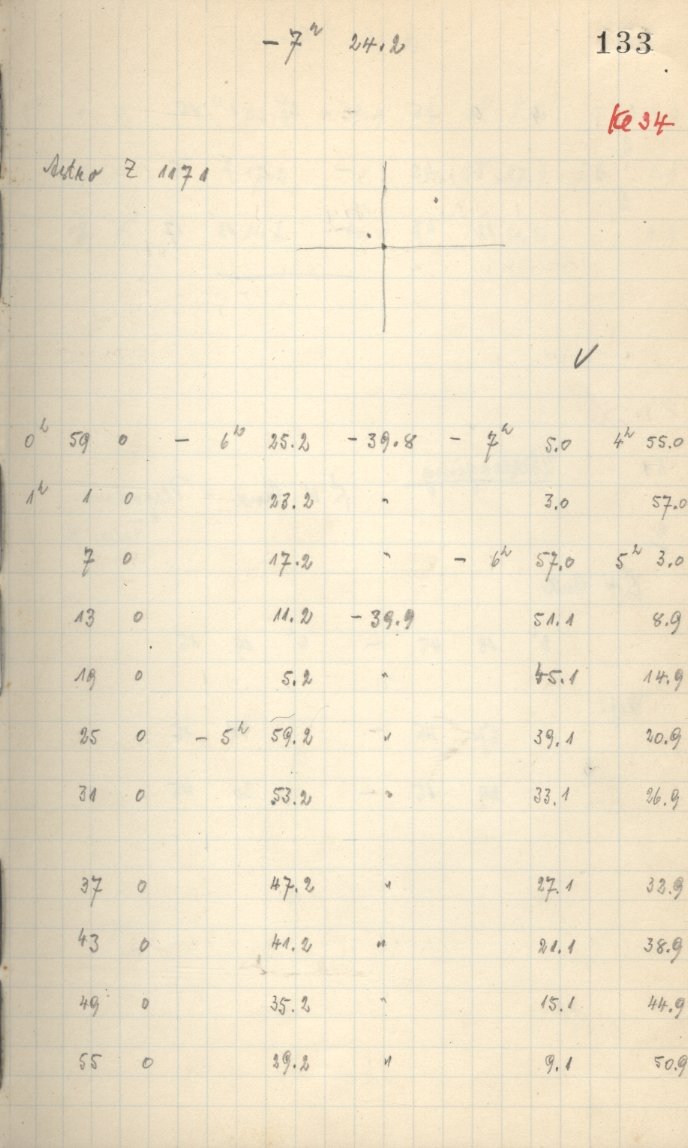 - 7h 24.2 133
Ke 34
Astro Z 1171
V
0h 59 0 - 6h 25.2 - 39.8 - 7h 5.0 4h 55.0
1h 1 0 23.2 " 3.0 57.0
7 0 17.2 " - 6h 57.0 5h 3.0
13 0 11.2 - 39.9 51.1 8.9
19 0 5.2 " 45.1 14.9
25 0 - 5h 59.2 " 39.1 20.9
31 0 53.2 " 33.1 26.9
37 0 47.2 " 27.1 32.9
43 0 41.2 " 21.1 38.9
49 0 35.2 " 15.1 44.9
55 0 29.2 " 9.1 50.9